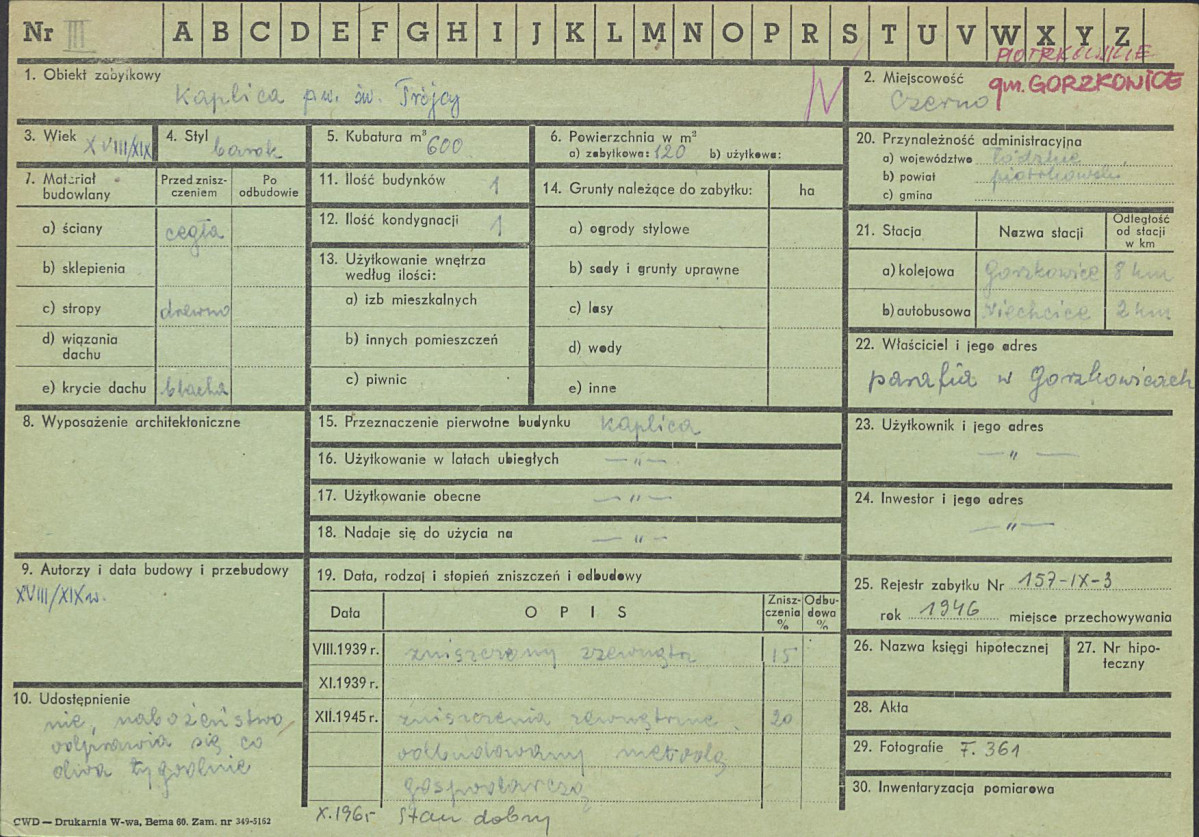 Nr III A B C D E F G H I J K L M N O P R S T U V W X Y Z
1. Obiekt zabytkowy
Kaplica p.w. św. Trójcy
2. Miejscowość
PIOTRKOWSKIE
gm. GORZKOWICE
Czerno
3. Wiek XVIII/XIX
4. Styl barok
5. Kubatura m³ 600
6. Powierzchnia w m²
a) zabytkowa: 120 b) użytkowa:
7. Materiał budowlany
Przed zniszczeniem
Po odbudowie
a) ściany cegła
b) sklepienia
c) stropy drewno
d) wiązania dachu
e) krycie dachu blacha
8. Wyposażenie architektoniczne
9. Autorzy i data budowy i przebudowy
XVIII/XIX w.
10. Udostępnienie
nie, nabożeństwo
odprawia się co
dwa tygodnie
11. Ilość budynków 1
12. Ilość kondygnacji 1
13. Użytkowanie wnętrza
według ilości:
a) izb mieszkalnych
b) innych pomieszczeń
c) piwnic
14. Grunty należące do zabytku: ha
a) ogrody stylowe
b) sady i grunty uprawne
c) lasy
d) wody
e) inne
15. Przeznaczenie pierwotne budynku kaplica
16. Użytkowanie w latach ubiegłych —„—
17. Użytkowanie obecne —„—
18. Nadaje się do użycia na —„—
19. Data, rodzaj i stopień zniszczeń i odbudowy
Data OPIS Zniszczenia % Odbudowa %
VIII.1939 r. zniszczony zzewnątrz 15
XI.1939 r.
XII.1945 r. zniszczenia zewnętrzne 20
odbudowany metodą
gospodarczą
X.1965 Stan dobry
20. Przynależność administracyjna
a) województwo łódzkie
b) powiat piotrkowski
c) gmina
21. Stacja Nazwa stacji Odległość od stacji w km
a) kolejowa Gorzkowice 8 km
b) autobusowa Niechcice 2 km
22. Właściciel i jego adres
parafia w Gorzkowicach
23. Użytkownik i jego adres
—„—
24. Inwestor i jego adres
—„—
25. Rejestr zabytku Nr 157-IX-3
rok 1946 miejsce przechowywania
26. Nazwa księgi hipotecznej
27. Nr hipoteczny
28. Akta
29. Fotografie F. 361
30. Inwentaryzacja pomiarowa
CWD — Drukarnia W-wa, Bema 60. Zam. nr 349-5162